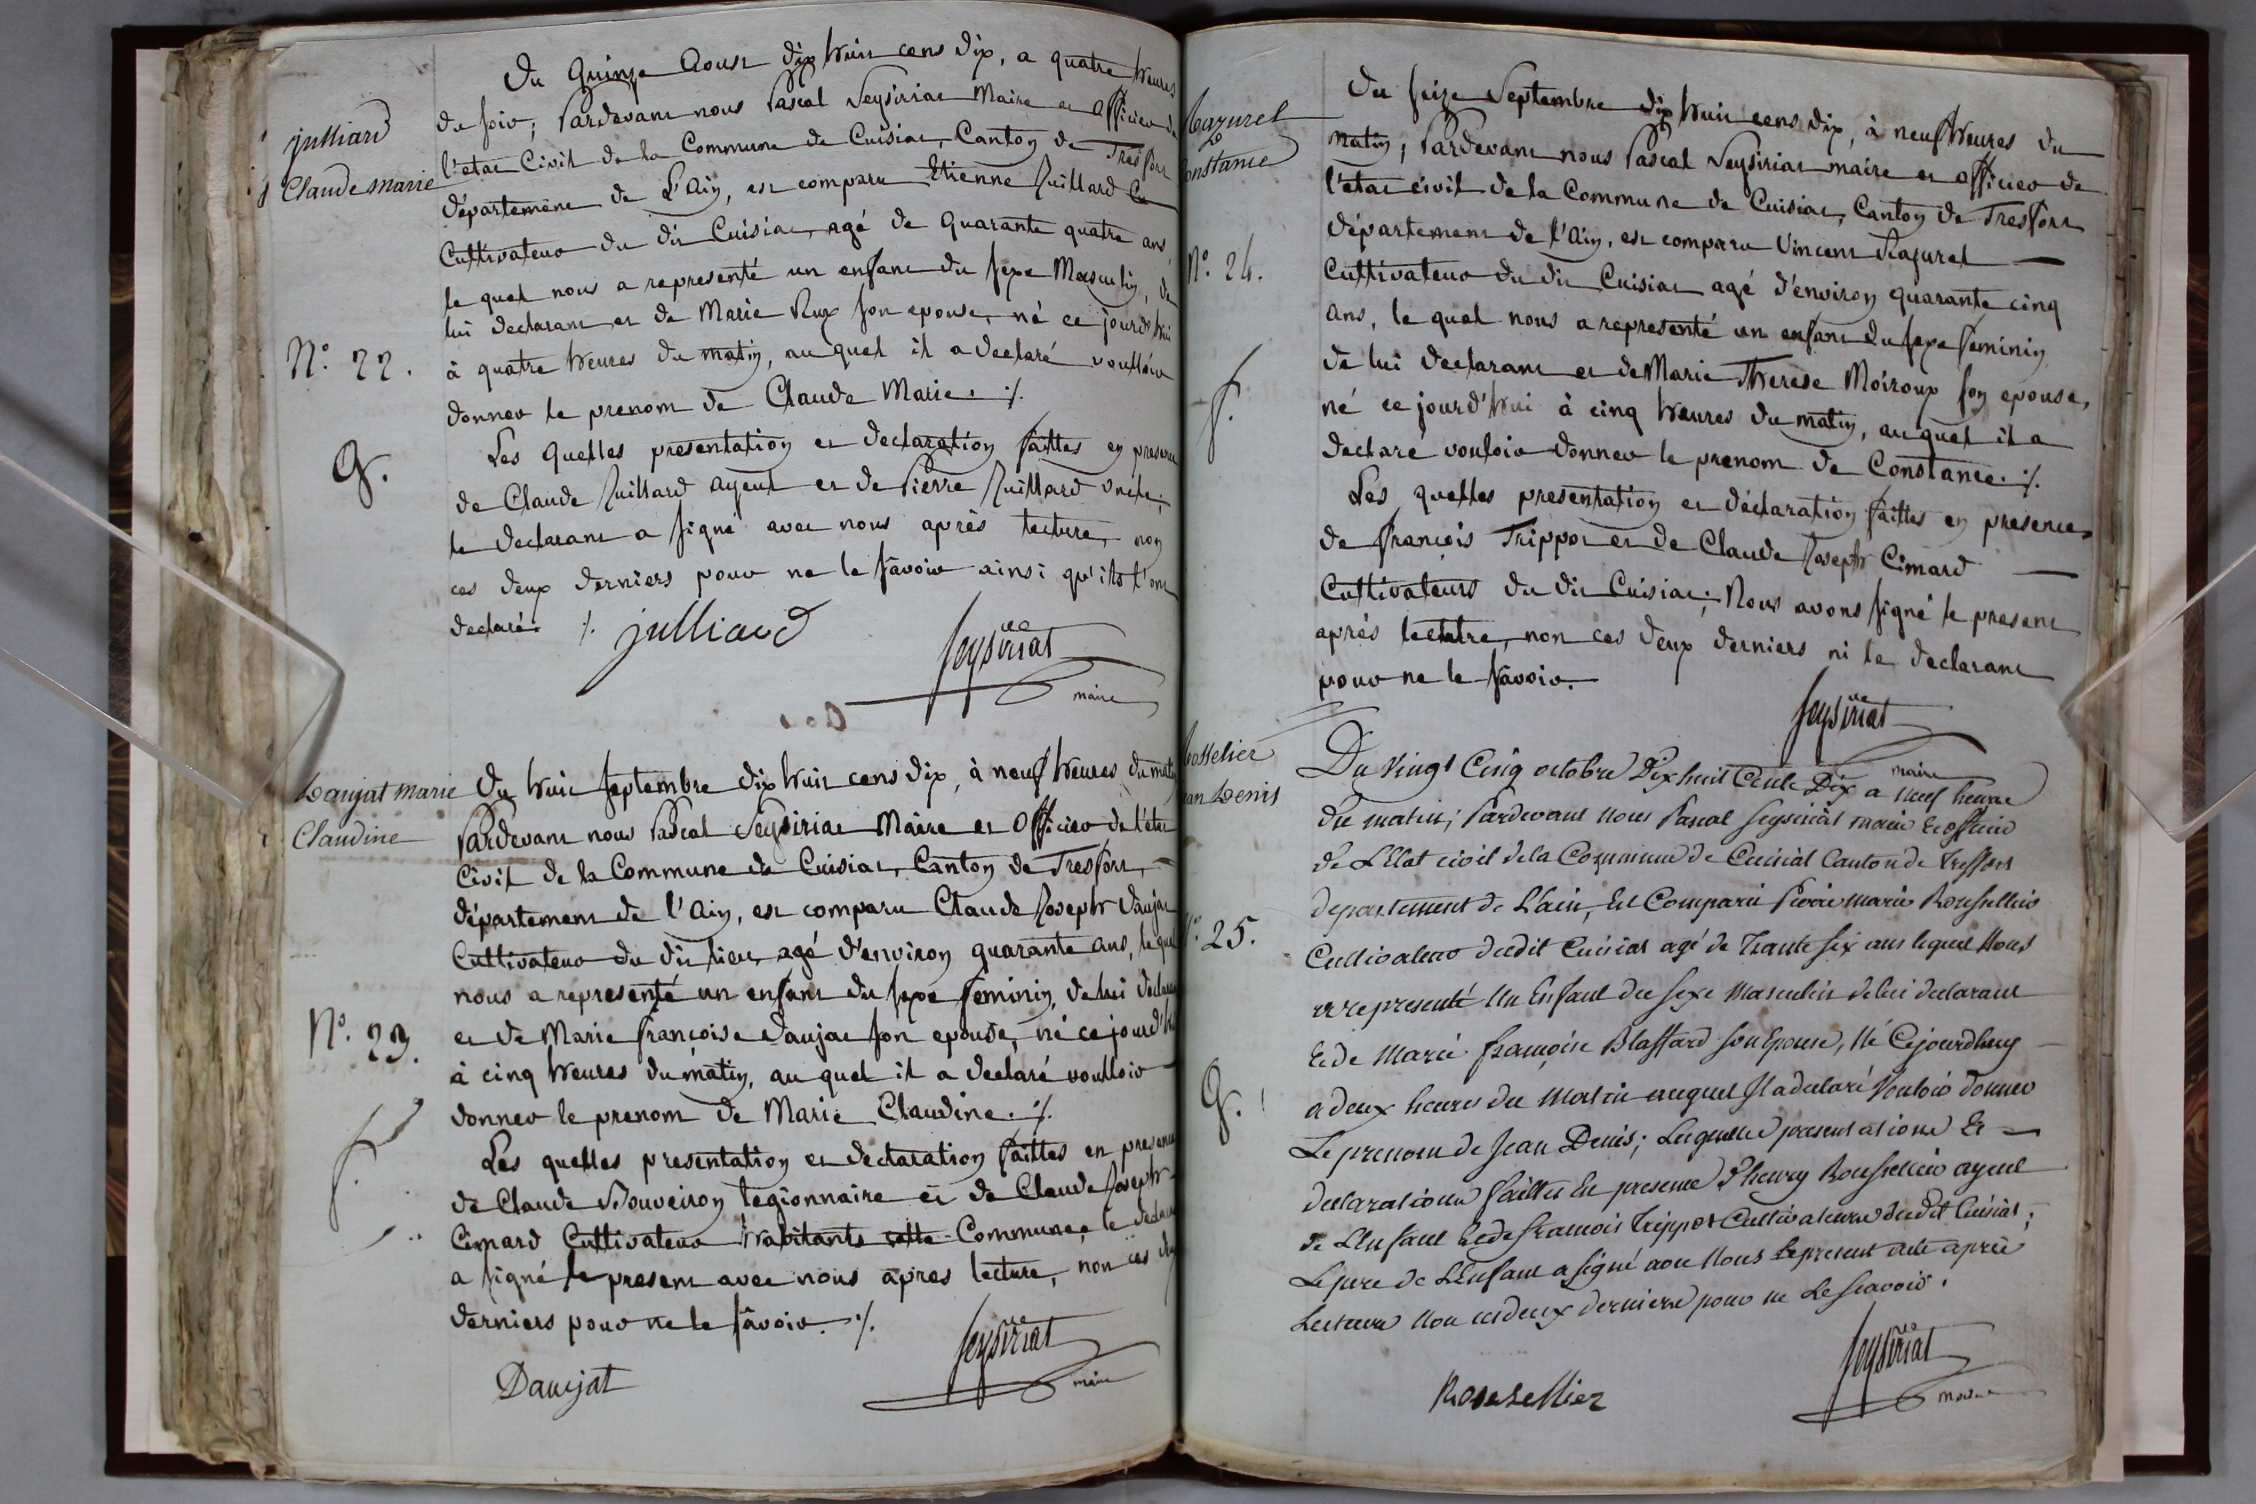 julliard
Claude marie
N.º 22.
G.
Du Quinze Aoust dix huit cens dix, a quatre heures
du soir; Pardevant nous Pascal Seysiriat Maire et Officier de
l'etat Civil de la Commune de Cuisiat, Canton de Tresfort
département de L'Ain, est comparu Etienne Juillard
Cultivateur du dit Cuisiat, agé de Quarante quatre ans,
le quel nous a representé un enfant du sexe Masculin, de
lui declarant et de Marie Rux son epouse, né ce jourd'hui
à quatre heures du matin, au quel il a declaré voulloir
donner le prenom de Claude Marie. ./.
Les Quelles presentation et declaration faittes en presence
de Claude Juillard ayeul et de Pierre Juillard oncle;
le declarant a signé avec nous après lecture, non
ces deux derniers pour ne le sâvoir ainsi qu'ils l'ont
declaré. ./. julliard
Seysiriat
maire
Daujat marie
Claudine
N.º 23.
f.
Du huit Septembre dix huit cens dix, à neuf heures du matin
Pardevant nous Pascal Seysiriat Maire et Officier de l'etat
Civil de la Commune de Cuisiat, Canton de Tresfort,
département de l'Ain, est comparu Claude Joseph Daujat
Cultivateur du dit lieu, agé d'environ quarante ans, le quel
nous a representé un enfant du sexe feminin, de lui declarant
et de Marie françoise Daujat son epouse, né ce jourd'hui
à cinq heures du matin, au quel il a declaré voulloir
donner le prenom de Marie Claudine. ./.
Les quelles presentation et declaration faittes en presence
de Claude Bouveiron legionnaire et de Claude Joseph
Cimard Cultivateur habitants cette Commune, le declarant
a signé le present avec nous après lecture, non ces deux
derniers pour ne le sâvoir. ./.
Daujat
Seysiriat
maire
Constance
N.º 24.
f.
Du seize Septembre dix huit cens dix, à neuf heures du
matin; Pardevant nous Pascal Seysiriat maire et officier de
l'etat civil de la Commune de Cuisiat, Canton de Tresfort
département de l'Ain, est comparu Vincent Razurel
Cultivateur du dit Cuisiat agé d'environ quarante cinq
ans, le quel nous a representé un enfant du sexe feminin
de lui declarant et de Marie Therese Moiroux son epouse,
né ce jourd'hui à cinq heures du matin, au quel il a
declaré vouloir donner le prenom de Constance. ./.
Les quelles presentation et déclaration faittes en presence
de françois Trippoz et de Claude Joseph Cimard
Cultivateurs du dit Cuisiat; Nous avons signé le present
après lecture, non ces deux derniers ni le declarant
pour ne le sâvoir.
Seysiriat
maire
Jean Denis
N.º 25.
G.
Du Vingt Cinq octobre Dix huit Cents Dix a neuf heure
du matin; Pardevant Nous Pascal Seysiriat maire Et officier
de L'Etat civil de la Commune de Cuisiat Canton de Treffort
departement de L'ain, Est Comparu Pierre marie Rousselier
Cultivateur dudit Cuisiat agé de Trante six ans lequel Nous
a representé Un Enfant du sexe Masculin de lui declarant
Et de Marie françoise Blaffard son Epouse, Né Cejourdhuy
a deux heures du Matin auquel Il a declaré Vouloir donner
Le prenom de Jean Denis; Lesquelle presentatione Et
declarationne faittes En presence d'henry Rousselier ayeul
de L'Enfant Et de francois Trippoz Cultivateure dudit Cuisiat;
Le pere de L'Enfant a signé avec Nous Le present acte aprés
Lecture Non ces deux derniere pour ne Le Scavoir.
Rousselier
Seysiriat
maire